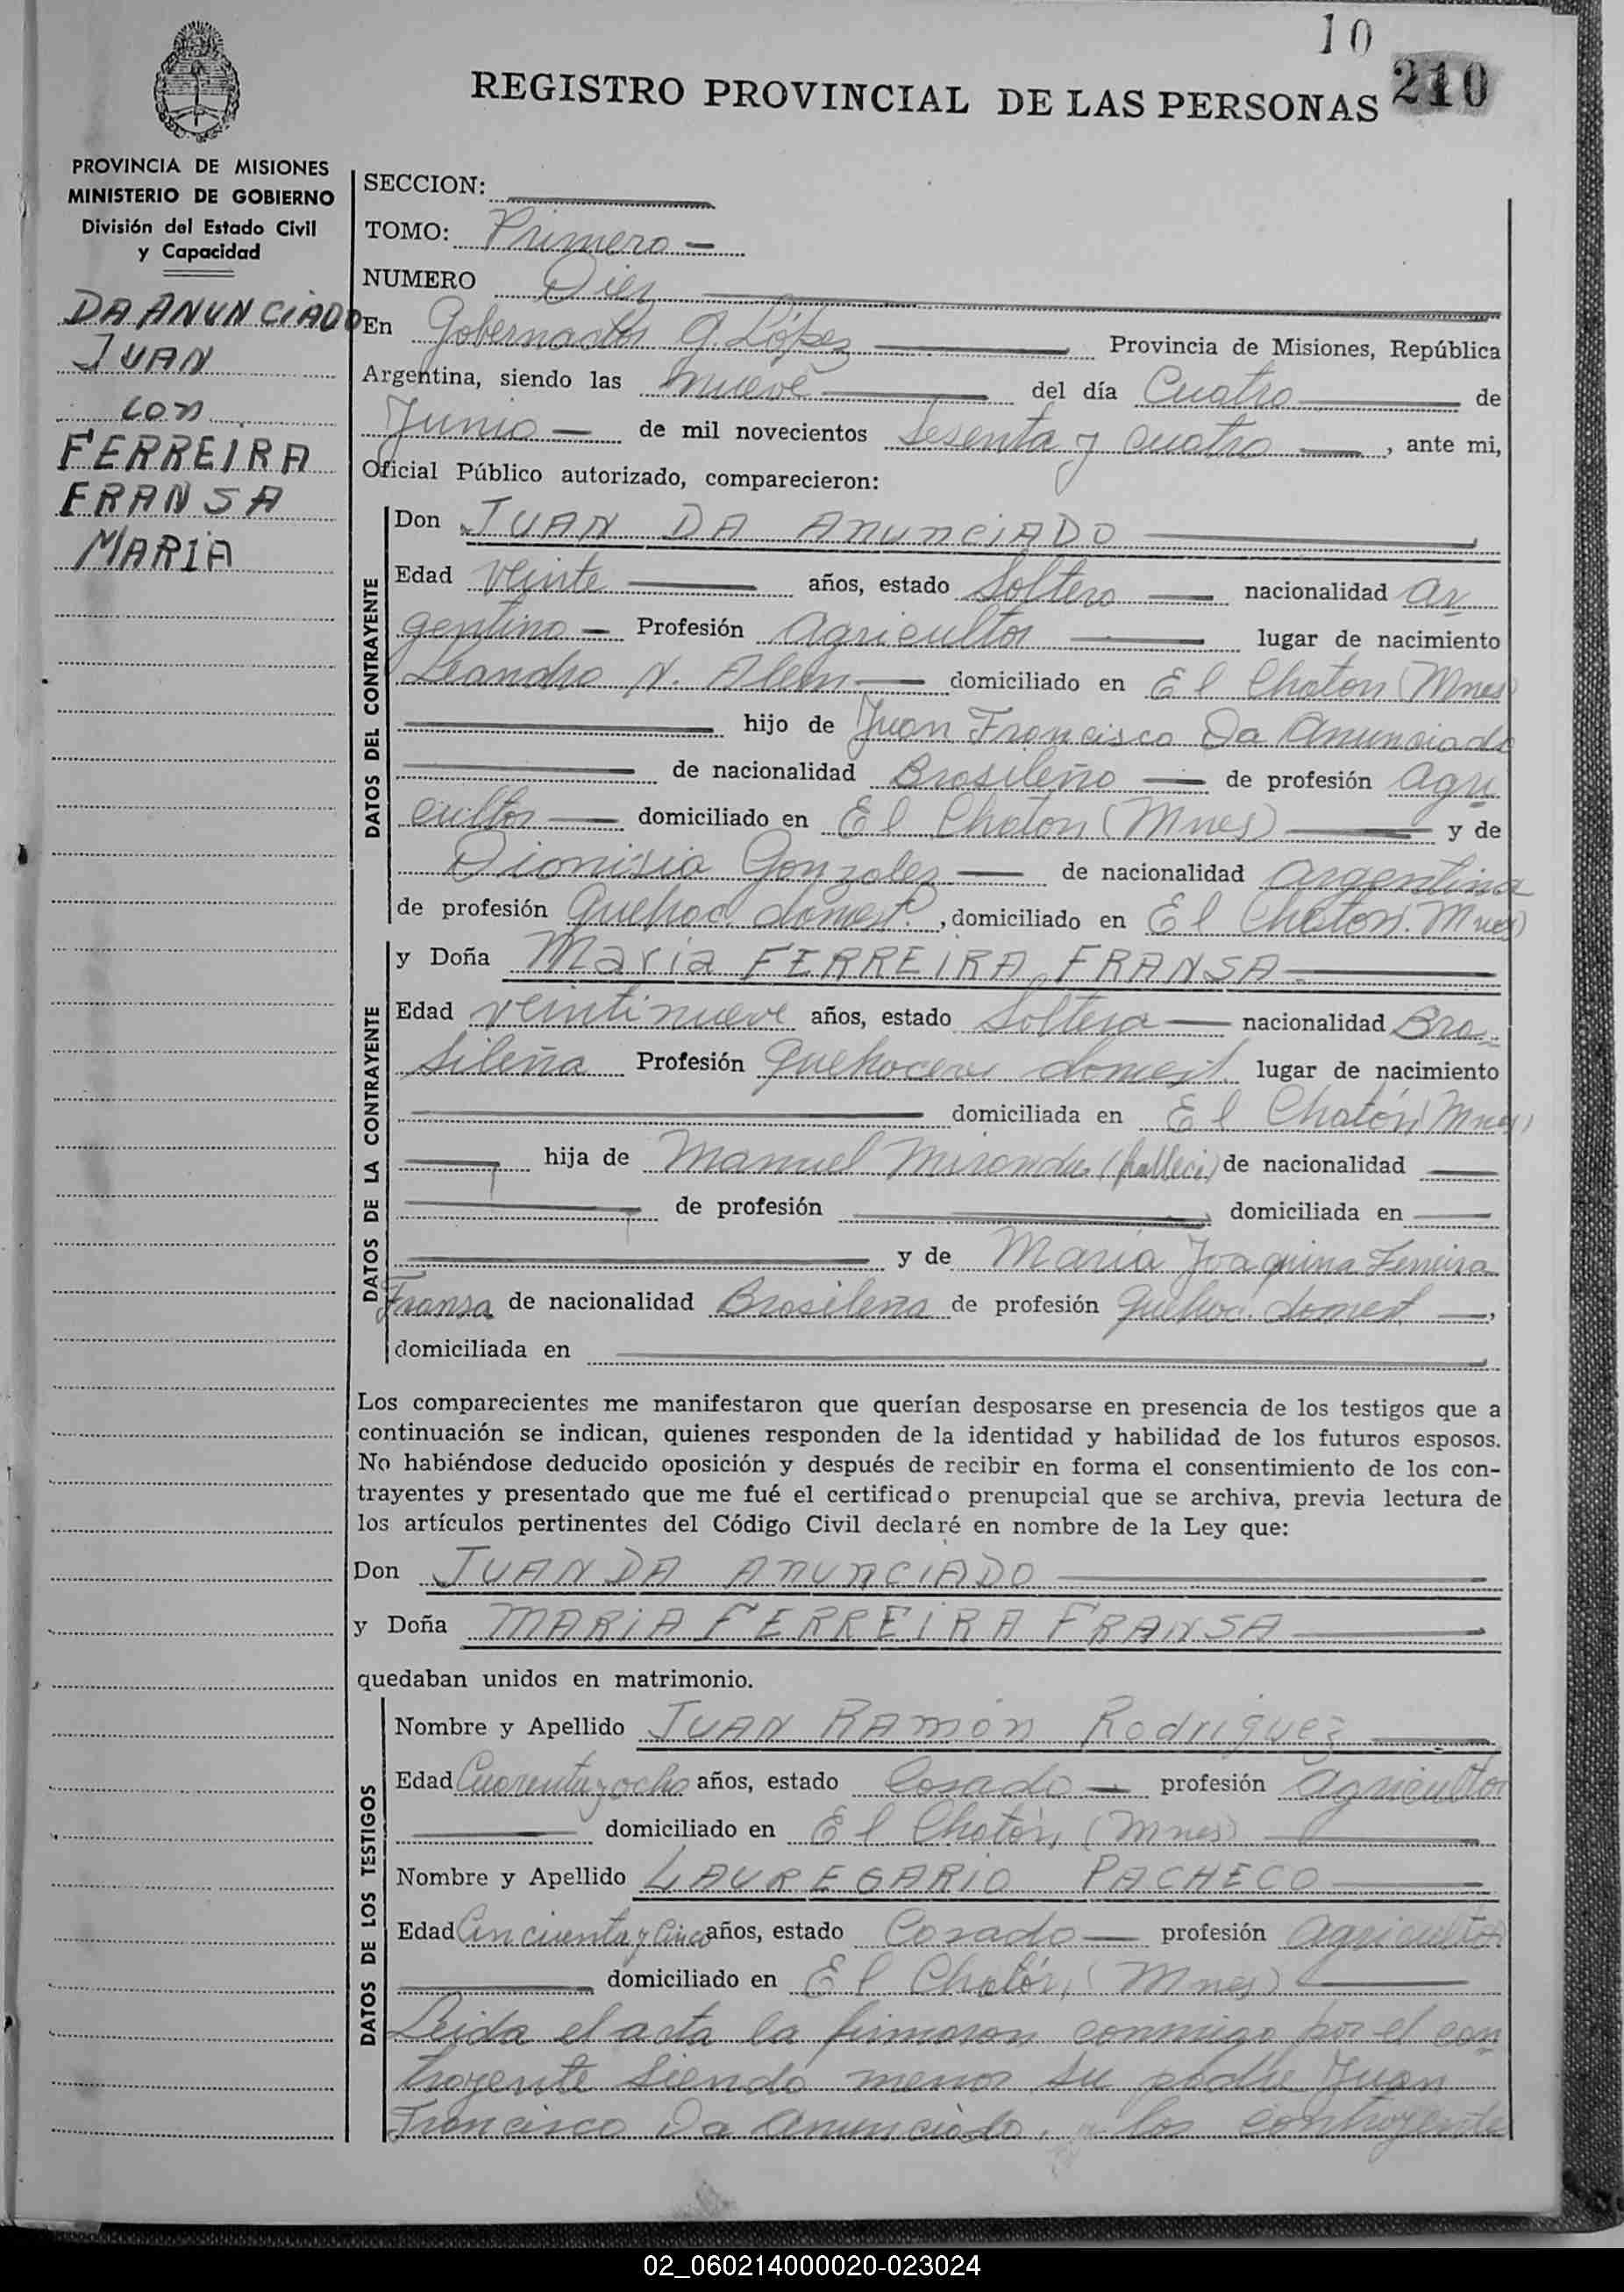 10
210
REGISTRO PROVINCIAL DE LAS PERSONAS
PROVINCIA DE MISIONES
MINISTERIO DE GOBIERNO
División del Estado Civil
y Capacidad
DA ANUNCIADO
JUAN
con
FERREIRA
FRANSA
MARIA
SECCION:
TOMO: Primero
NUMERO Diez
En Gobernador G. López Provincia de Misiones, República
Argentina, siendo las nueve del día Cuatro de
Junio de mil novecientos Sesenta y cuatro, ante mi,
Oficial Público autorizado, comparecieron:
DATOS DEL CONTRAYENTE
Don JUAN DA ANUNCIADO
Edad veinte años, estado Soltero nacionalidad Ar
gentino Profesión Agricultor lugar de nacimiento
Leandro N. Alem domiciliado en El Chaton (Mnes)
hijo de Juan Francisco Da Anunciado
de nacionalidad Brasileño de profesión Agri
cultor domiciliado en El Chaton (Mnes) y de
Dionisia Gonzalez de nacionalidad Argentina
de profesión Quehac. domest., domiciliado en El Chaton. Mnes)
DATOS DE LA CONTRAYENTE
y Doña Maria FERREIRA FRANSA
Edad veintinueve años, estado Soltera nacionalidad Bra
sileña Profesión Quehaceres domest. lugar de nacimiento
domiciliada en El Chatón (Mnes)
hija de Manuel Miranda de nacionalidad
de profesión domiciliada en
y de Maria Joaquina Ferreira
Fransa de nacionalidad Brasileña de profesión Quehac. domest,
domiciliada en
Los comparecientes me manifestaron que querían desposarse en presencia de los testigos que a
continuación se indican, quienes responden de la identidad y habilidad de los futuros esposos.
No habiéndose deducido oposición y después de recibir en forma el consentimiento de los con-
trayentes y presentado que me fué el certificado prenupcial que se archiva, previa lectura de
los artículos pertinentes del Código Civil declaré en nombre de la Ley que:
Don JUAN DA ANUNCIADO
y Doña MARIA FERREIRA FRANSA
quedaban unidos en matrimonio.
DATOS DE LOS TESTIGOS
Nombre y Apellido JUAN RAMON Rodriguez
Edad Cuarenta y ocho años, estado Casado profesión Agricultor
domiciliado en El Chatón, (Mnes)
Nombre y Apellido LAUREGARIO PACHECO
Edad Cincuenta y Cinco años, estado Casado profesión Agricultor
domiciliado en El Chatón, (Mnes)
Leida el acta la firmaron conmigo por el con
trayente siendo menor su padre Juan
Francisco Da Anunciado, los contrayentes
02_060214000020-023024